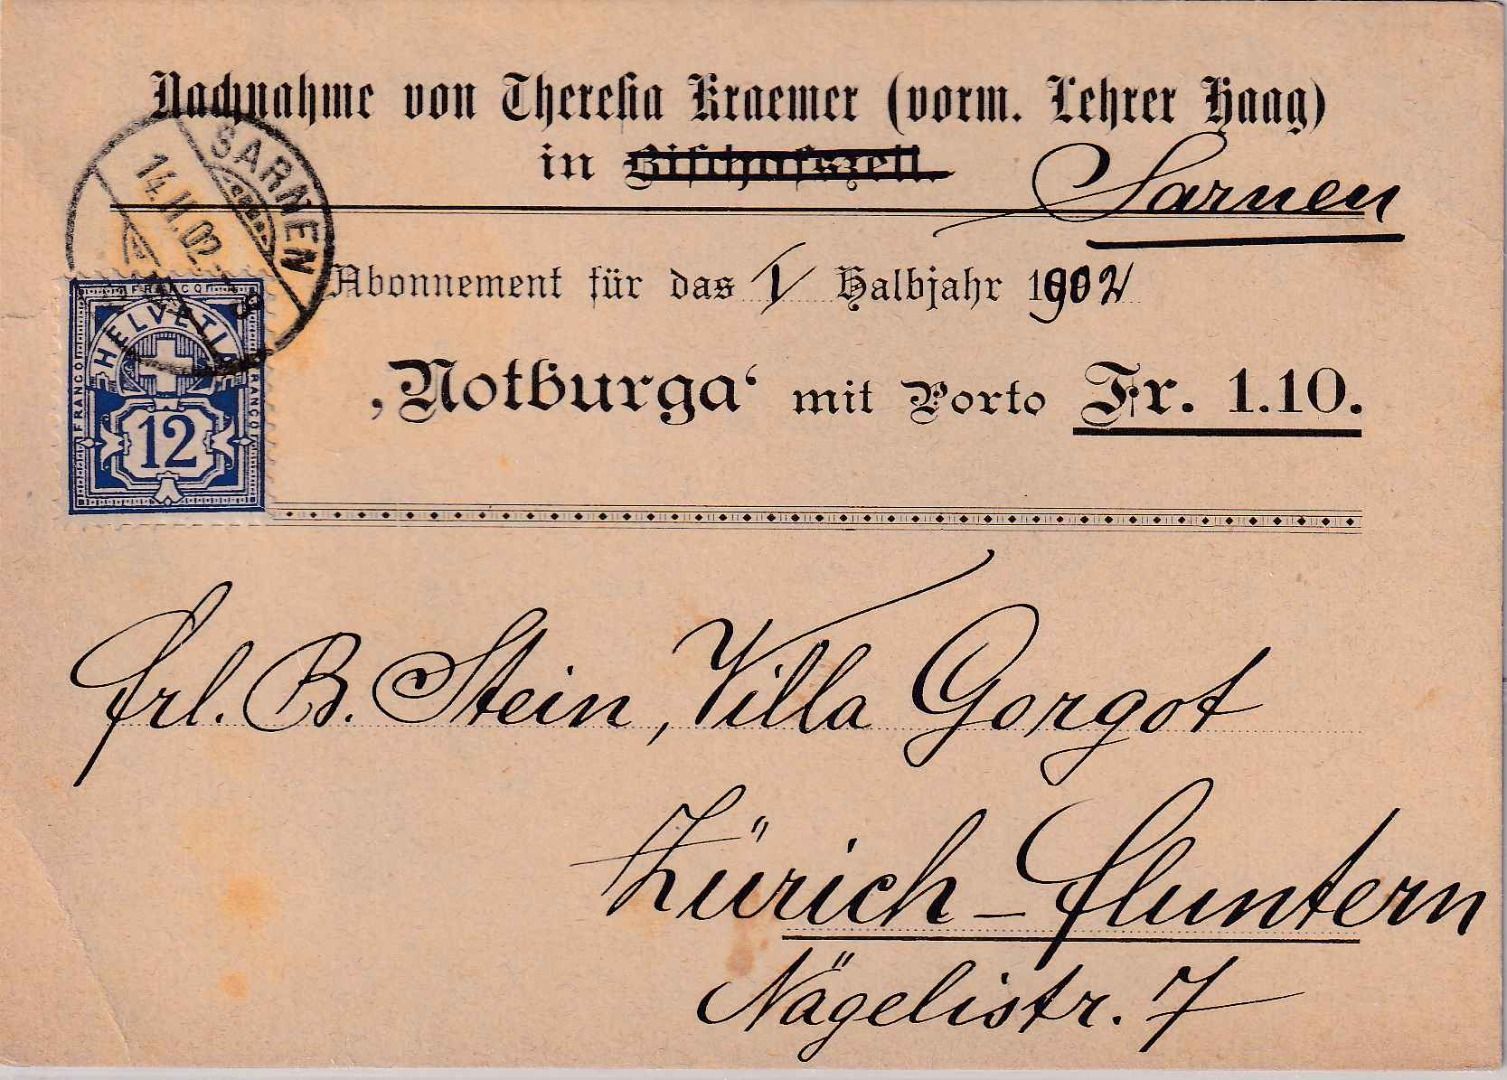 Nachnahme von Theresia Kraemer (vorm. Lehrer Haag)
in Bischofszell. Sarnen
SARNEN
14.II.02.-8
Abonnement für das I Halbjahr 1902
‚Notburga‘ mit Porto Fr. 1.10.
FRANCO
FRANCO
FRANCO
HELVETIA
12
Frl. B. Stein, Villa Gorgot
Zürich-Fluntern
Nägelistr. 7